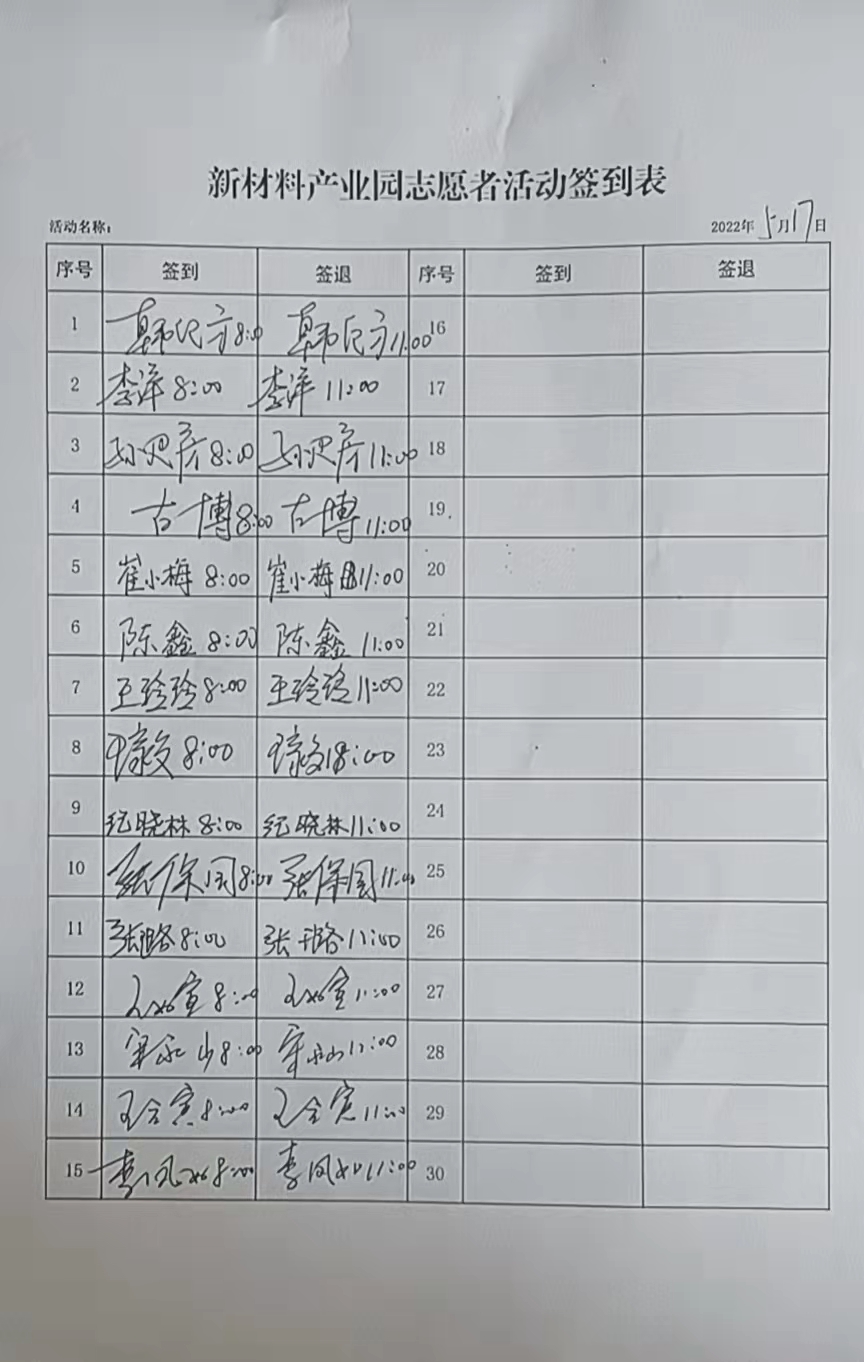 新材料产业园志愿者活动签到表
活动名称: 2022年5月17日
序号 签到 签退 序号 签到 签退
1 8:00 11:00 16
2 李洋 8:00 李洋 11:00 17
3 8:00 11:00 18
4 古博 8:00 古博 11:00 19
5 崔小梅 8:00 崔小梅 11:00 20
6 陈鑫 8:00 陈鑫 11:00 21
7 王玲玲 8:00 王玲玲 11:00 22
8 8:00 18:00 23
9 纪晓林 8:00 纪晓林 11:00 24
10 张保国 8:00 张保国 11:00 25
11 张 8:00 张 11:00 26
12 8:00 11:00 27
13 8:00 11:00 28
14 王 8:00 王 11:00 29
15 李凤 8:00 李凤 11:00 30